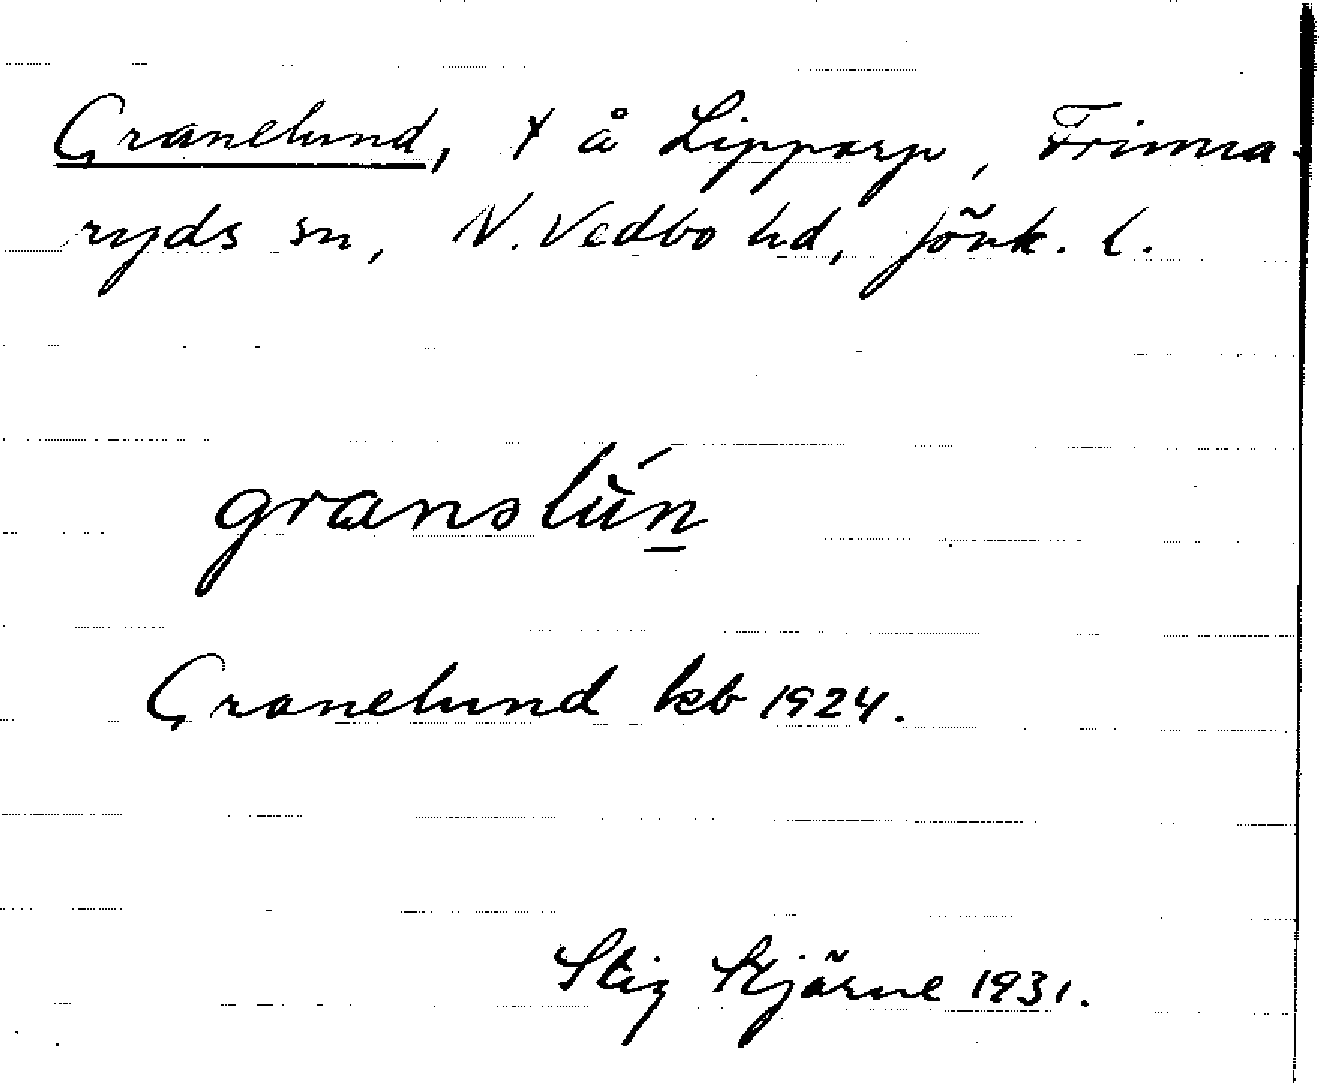 Granelund, † å Lipparp, Frinna-
ryds sn, N. Vedbo hd, Jönk. l.
granslùn
Granelund kb 1924.
Stig Stjärne 1931.